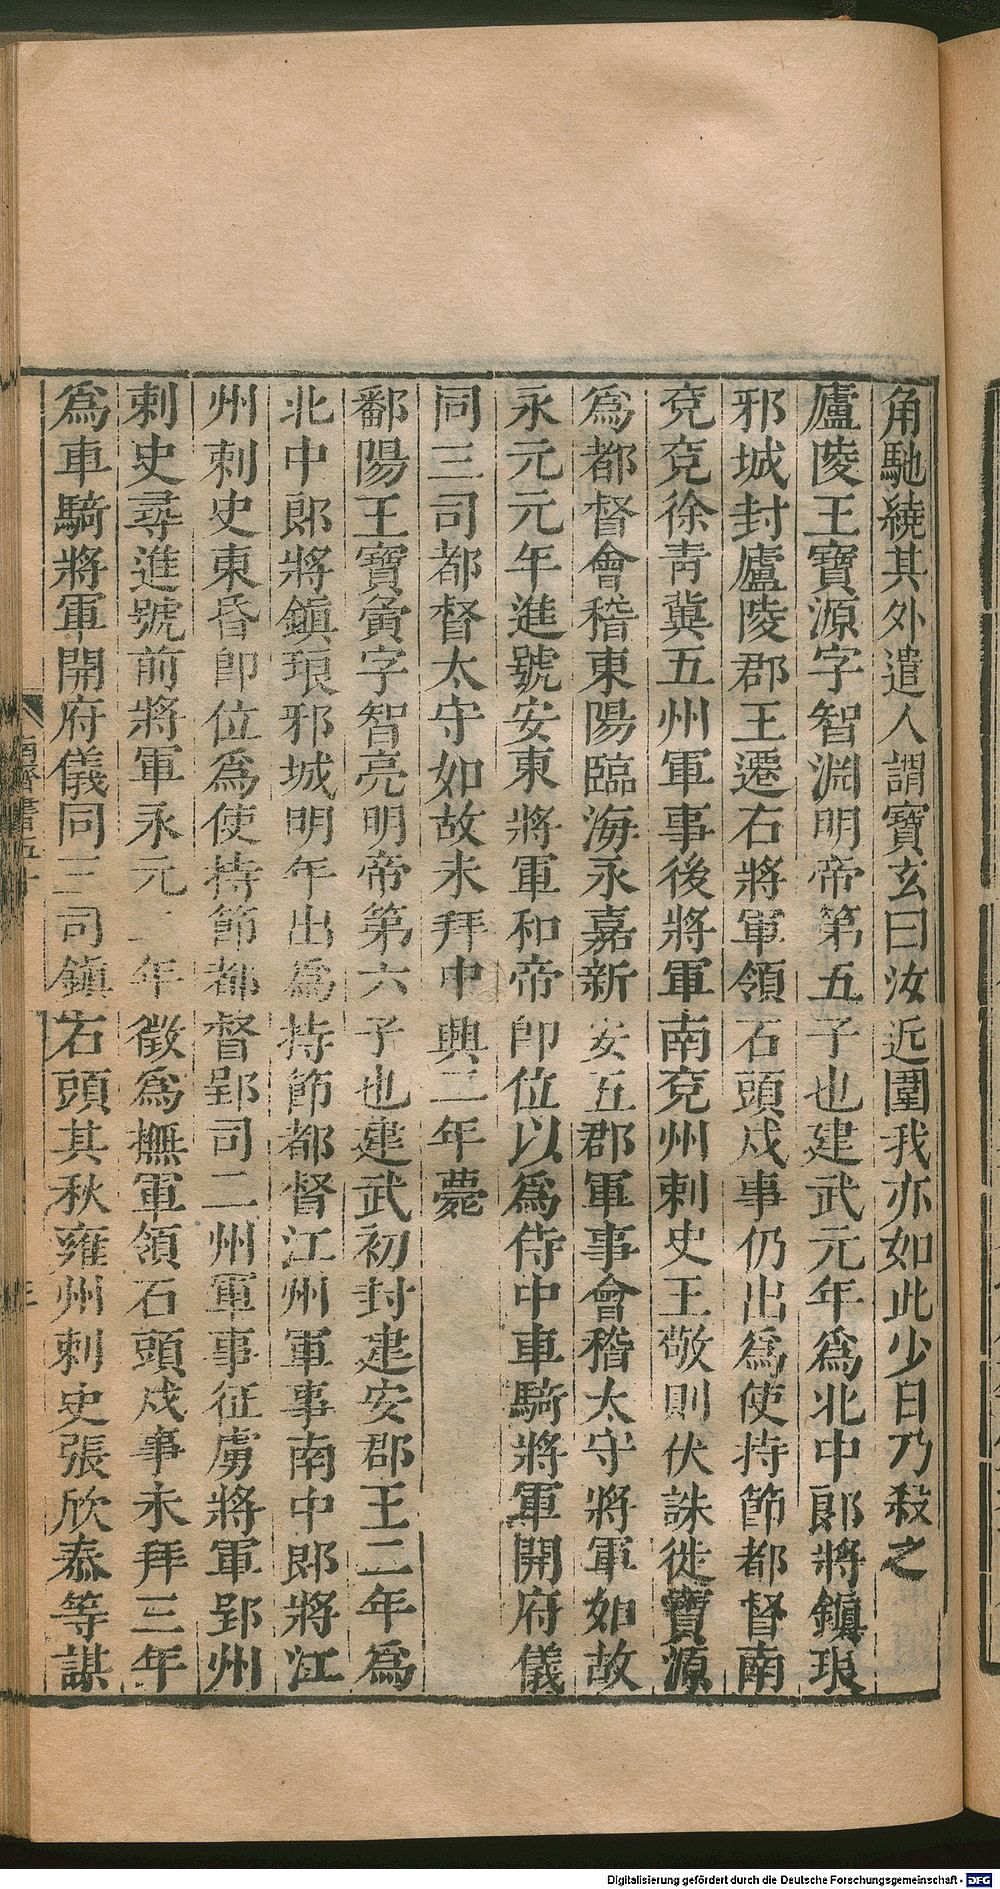 角馳繞其外遣人謂寶玄曰汝近圍我亦如此少日乃殺之
廬陵王寶源字智淵明帝第五子也建武元年為北中郎將鎮琅
邪城封廬陵郡王遷右將軍領石頭戍事仍出為使持節都督南
兗兗徐青冀五州軍事後將軍南兗州刺史王敬則伏誅徙寶源
為都督會稽東陽臨海永嘉新安五郡軍事會稽太守將軍如故
永元元年進號安東將軍和帝即位以為侍中車騎將軍開府儀
同三司都督太守如故未拜中興二年薨
鄱陽王寶寅字智亮明帝第六子也建武初封建安郡王二年為
北中郎將鎮琅邪城明年出為持節都督江州軍事南中郎將江
州刺史東昏即位為使持節都督郢司二州軍事征虜將軍郢州
刺史尋進號前將軍永元二年徵為撫軍領石頭戍事未拜三年
為車騎將軍開府儀同三司鎮石頭其秋雍州刺史張欣泰等謀
南齊書五十
Digitalisierung gefördert durch die Deutsche Forschungsgemeinschaft - DFG